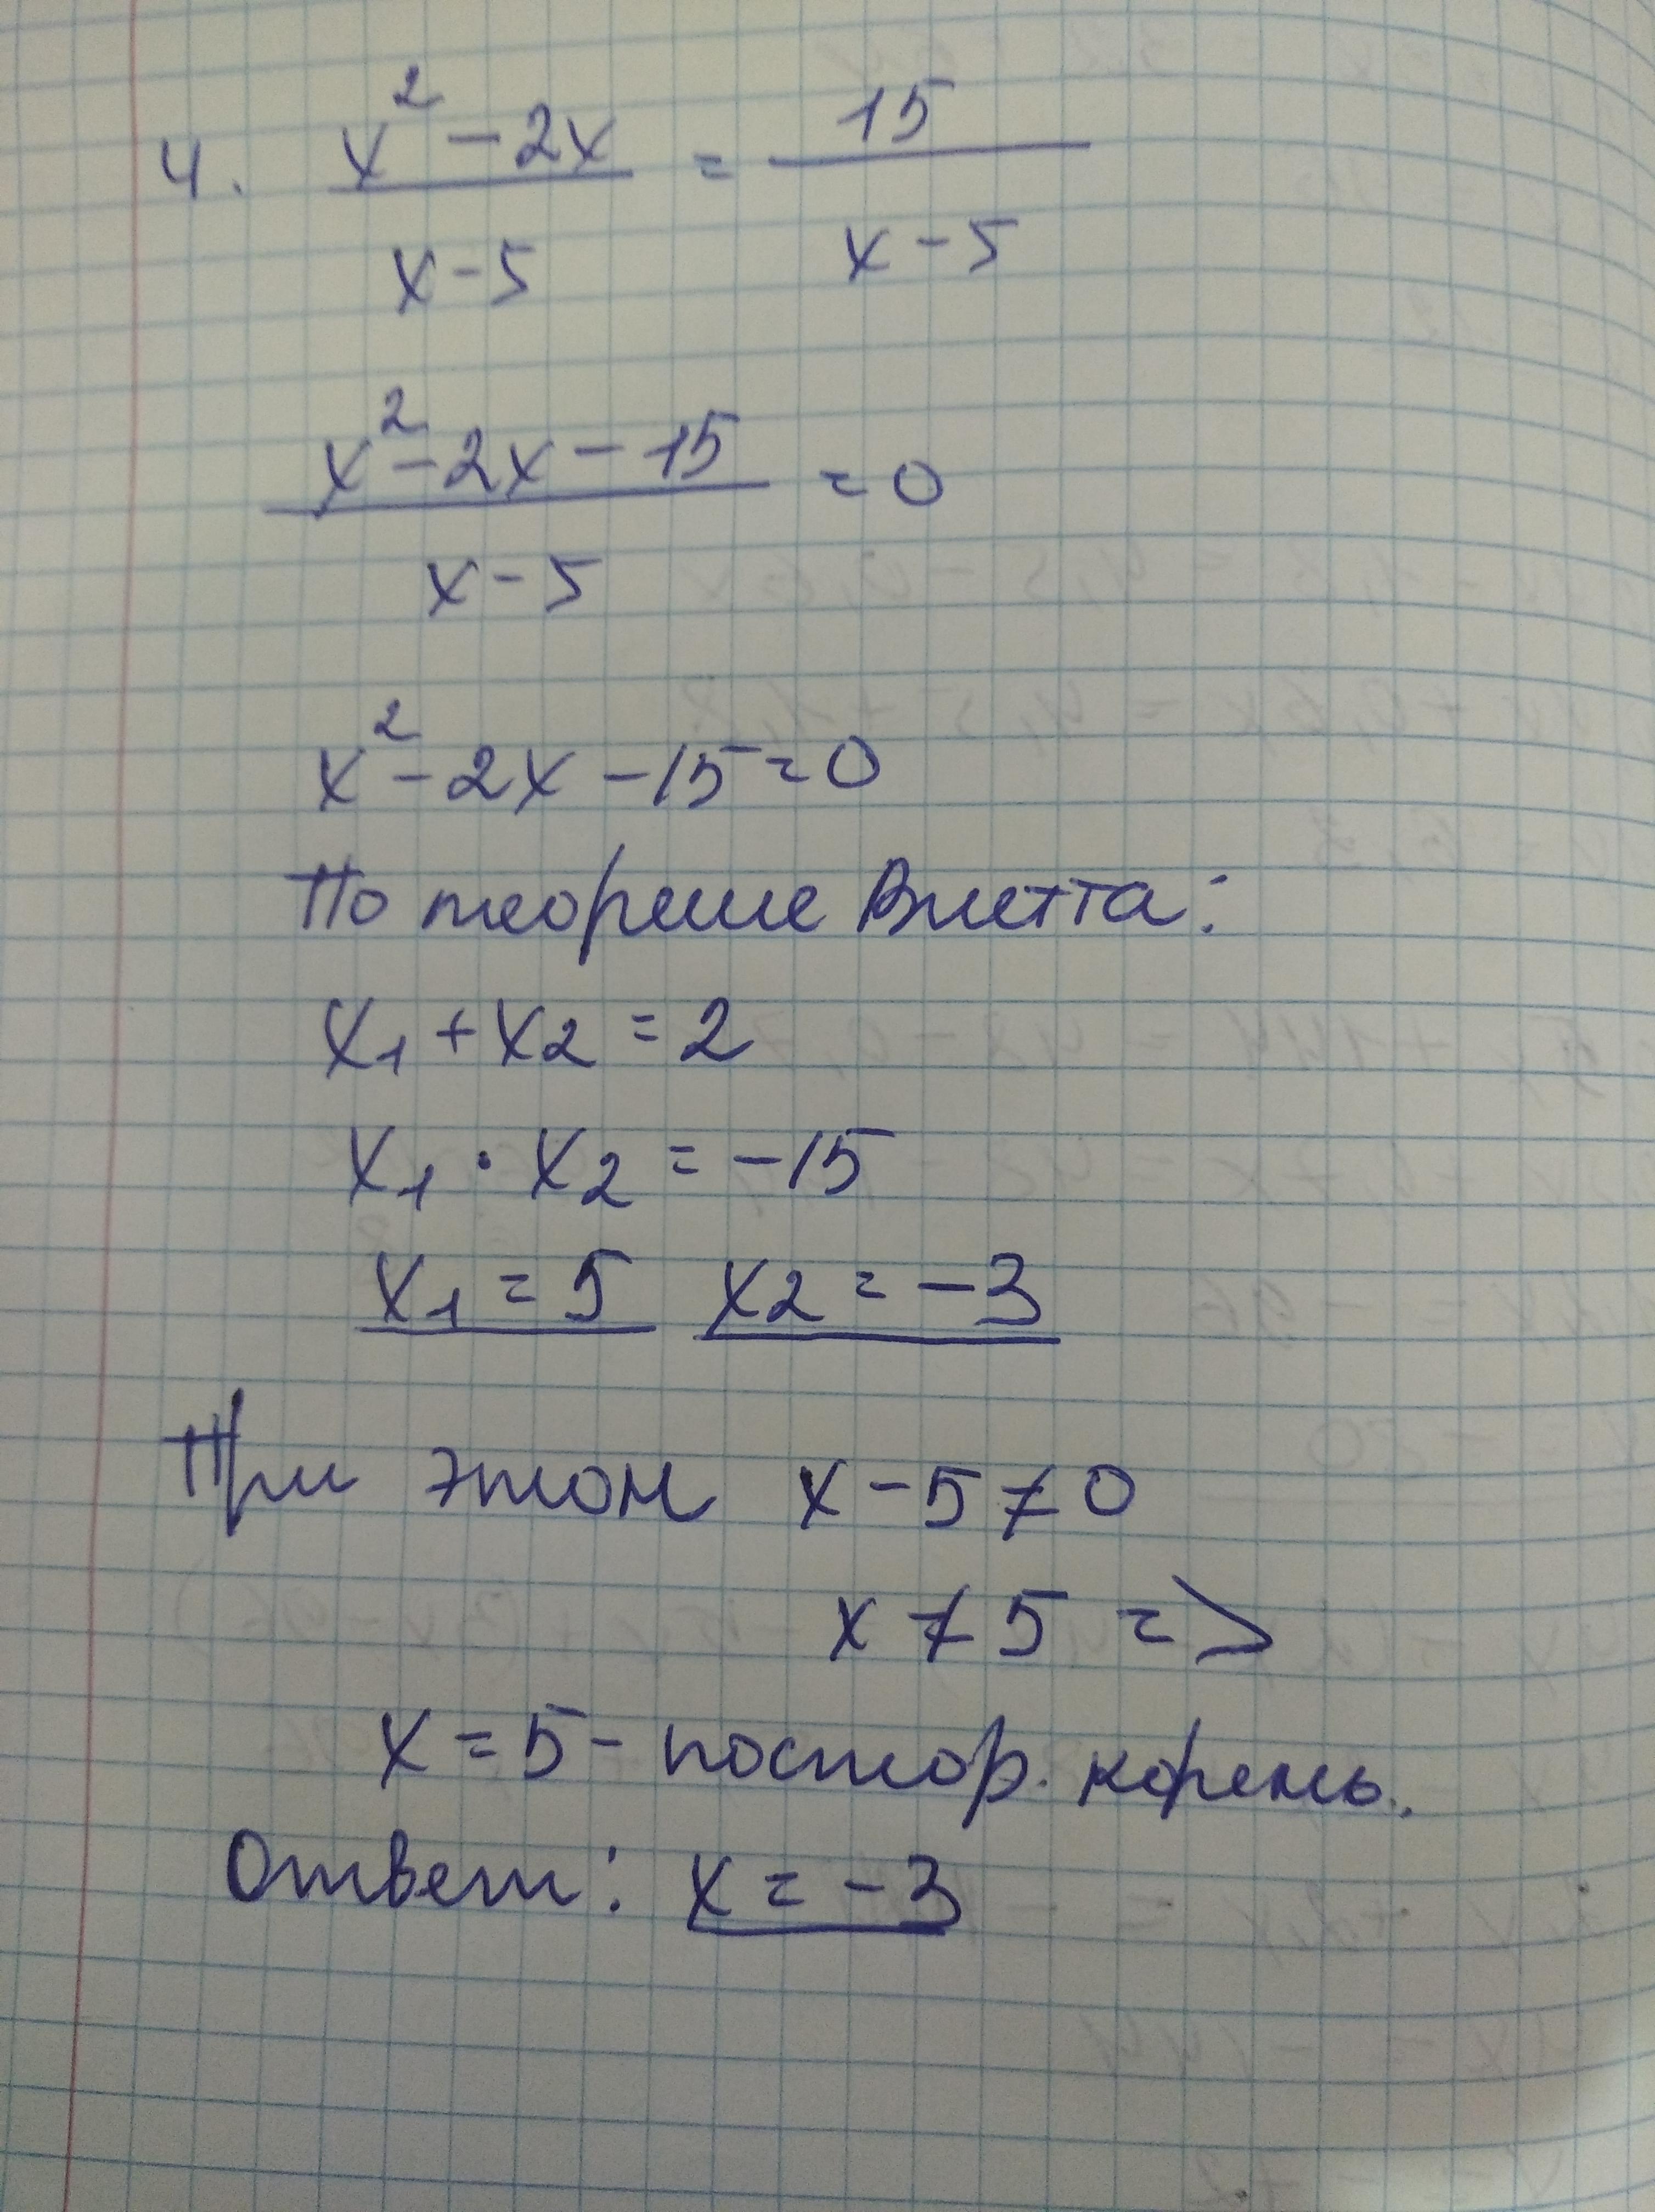 4. x² - 2x / x - 5 = 15 / x - 5
x² - 2x - 15 / x - 5 = 0
x² - 2x - 15 = 0
По теореме Виетта:
x₁ + x₂ = 2
x₁ · x₂ = -15
x₁ = 5 x₂ = -3
При этом x - 5 ≠ 0
x ≠ 5 =>
x = 5 - постор. корень.
Ответ: x = -3